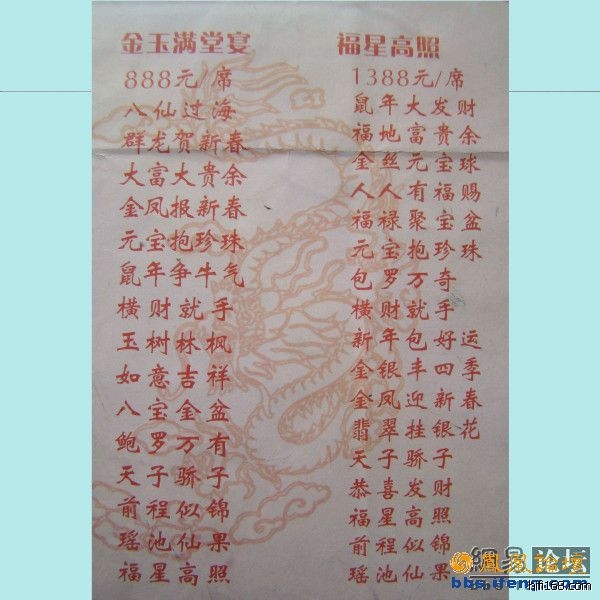 金玉满堂宴
888元/席
八仙过海
群龙贺新春
大富大贵余
金凤报新春
元宝抱珍珠
鼠年争牛气
横财就手
玉树林枫
如意吉祥
八宝金盆
鲍罗万有
天子骄子
前程似锦
瑶池仙果
福星高照
福星高照
1388元/席
鼠年大发财
福地富贵余
金丝元宝球
人人有福赐
福禄聚宝盆
元宝抱珍珠
包罗万奇
横财就手
新年包好运
金银丰四季
金凤迎新春
翡翠挂银花
天子骄子
恭喜发财
福星高照
前程似锦
瑶池仙果
網易论坛
鳳凰論壇
bbs.ifeng.com